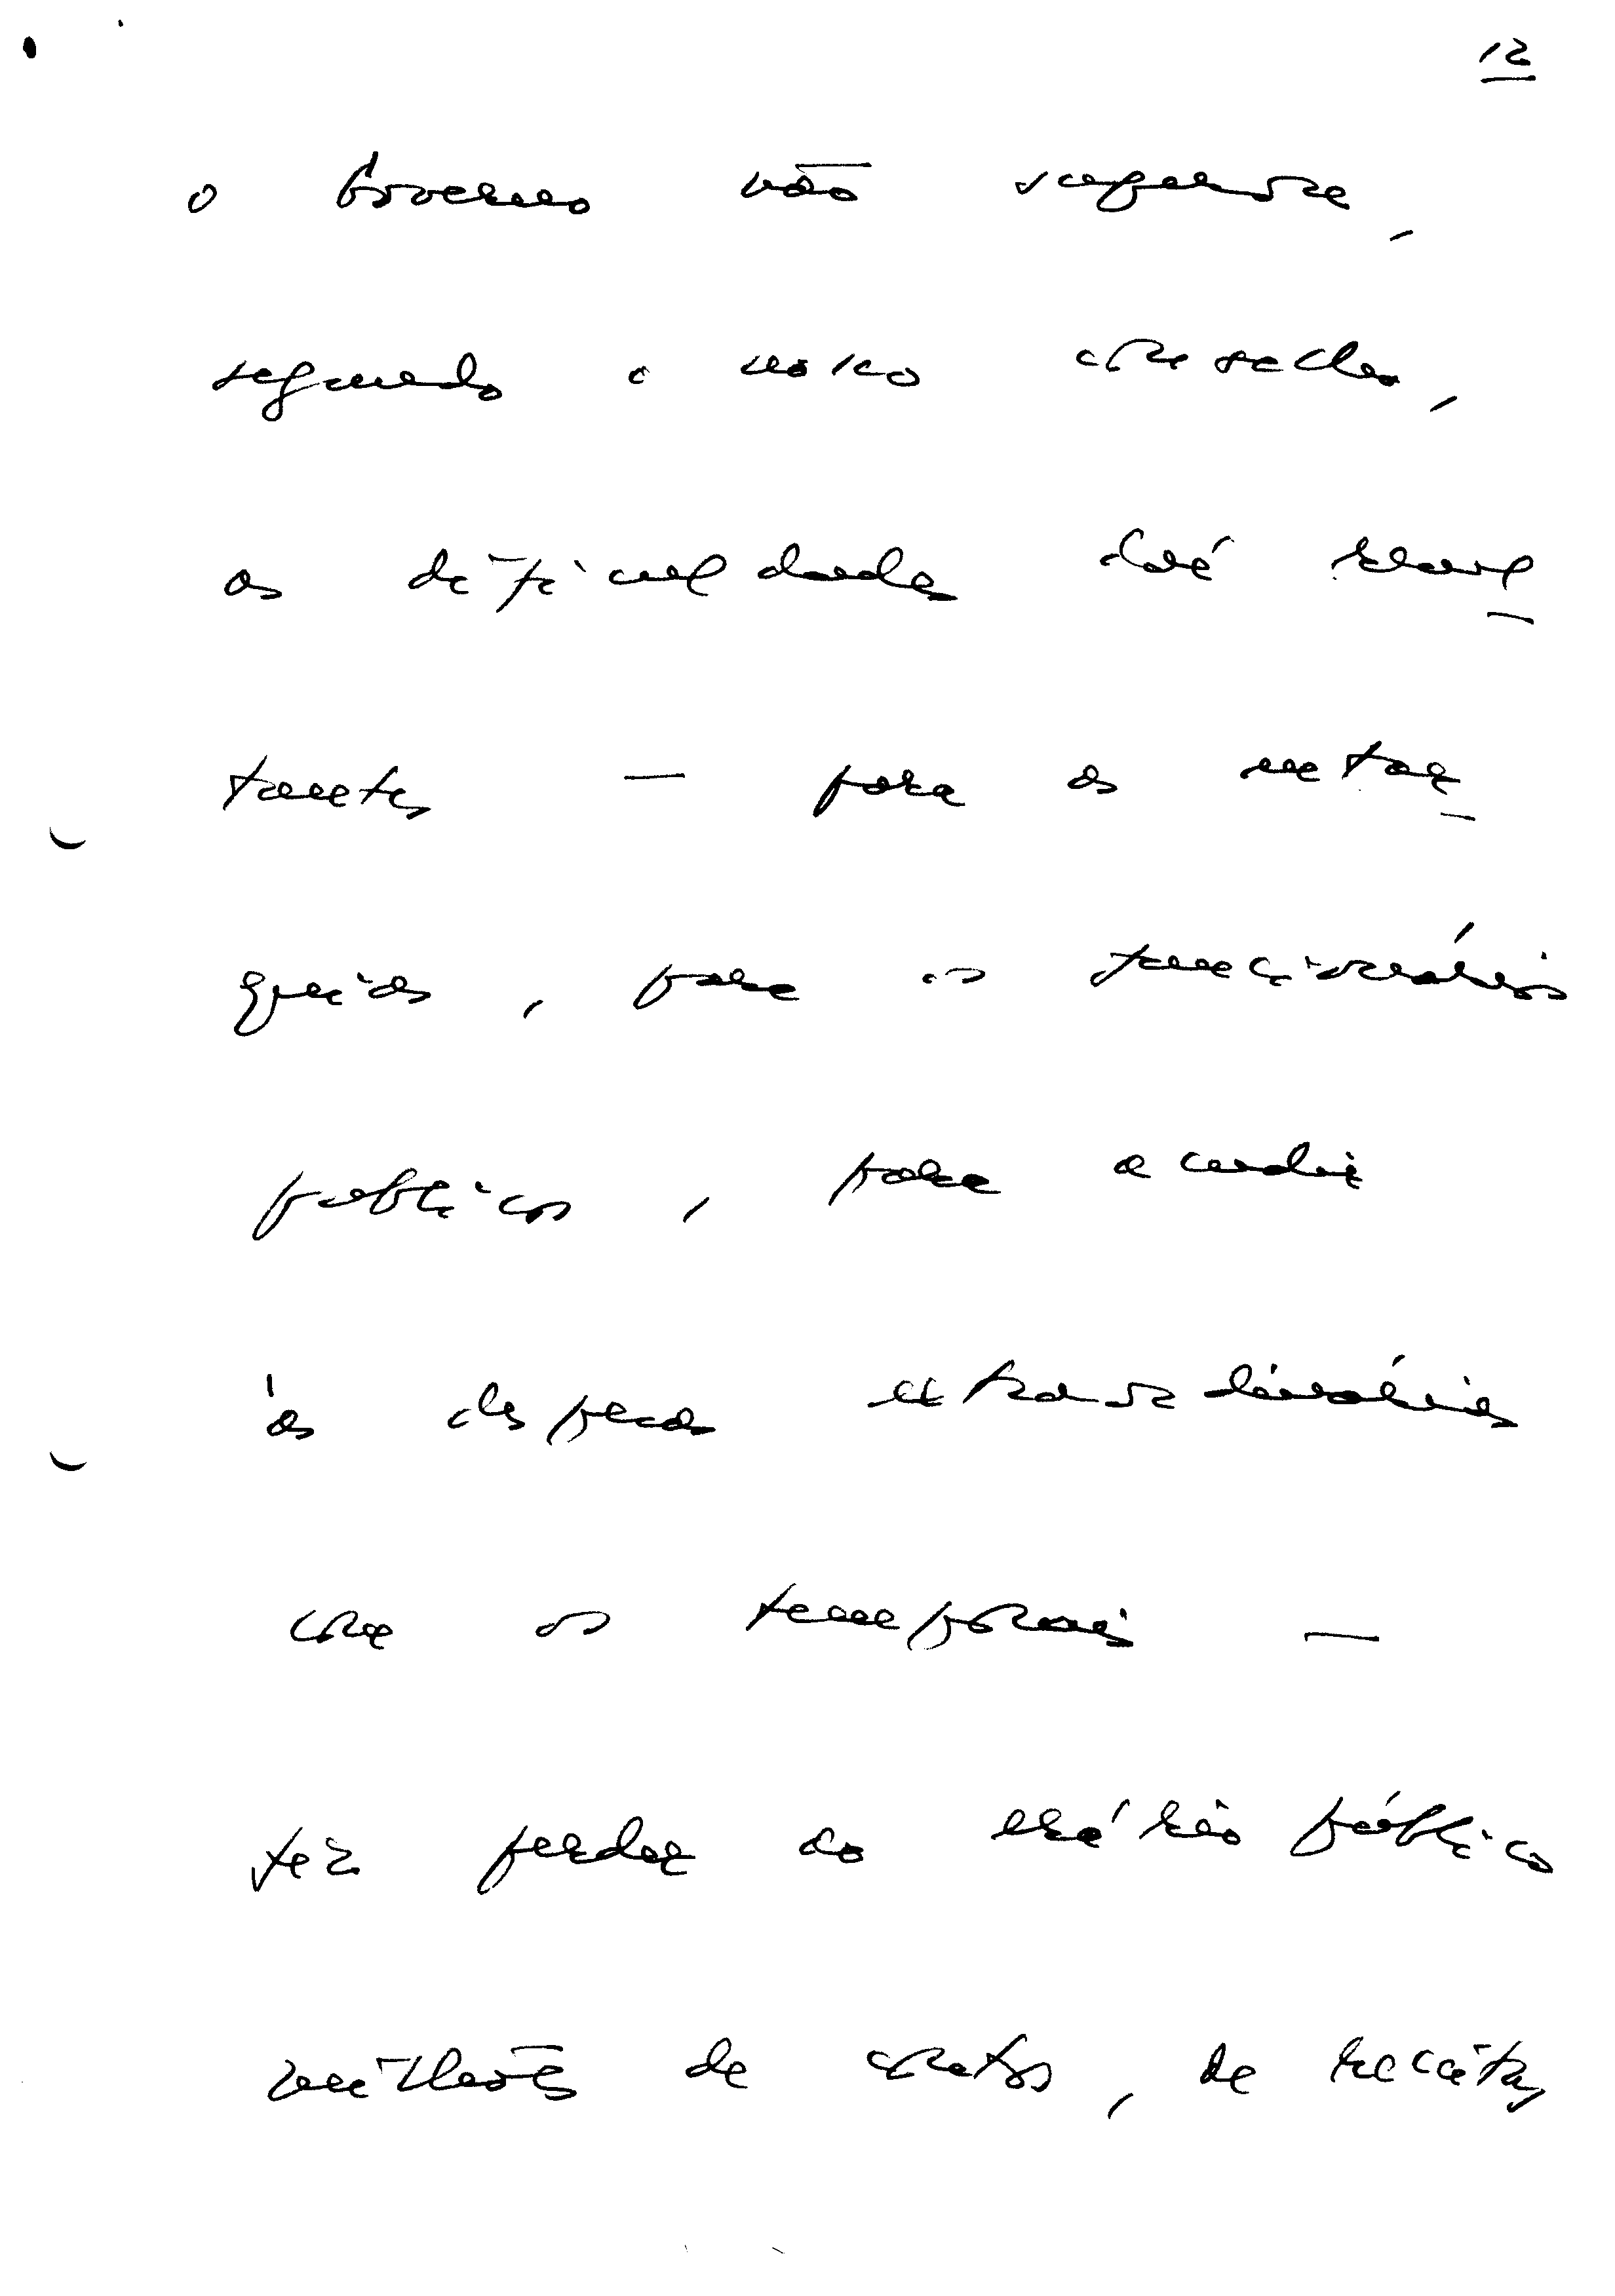 12
o Governo não suspendesse,
segundo o nosso conselho,
as dificuldades daí resul-
tantes — para os metar-
gicos, para os funcionários
públicos, para acudir
às despesas extraordinárias
com os temporais —
fez perder ao erário público
milhões de contos, de receitas,